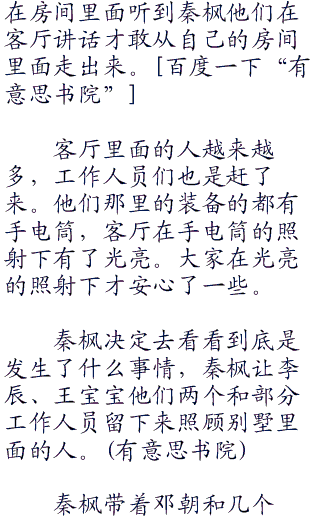 在房间里面听到秦枫他们在
客厅讲话才敢从自己的房间
里面走出来。[百度一下“有
意思书院”]
客厅里面的人越来越
多，工作人员们也是赶了
来。他们那里的装备的都有
手电筒，客厅在手电筒的照
射下有了光亮。大家在光亮
的照射下才安心了一些。
秦枫决定去看看到底是
发生了什么事情，秦枫让李
辰、王宝宝他们两个和部分
工作人员留下来照顾别墅里
面的人。(有意思书院)
秦枫带着邓朝和几个